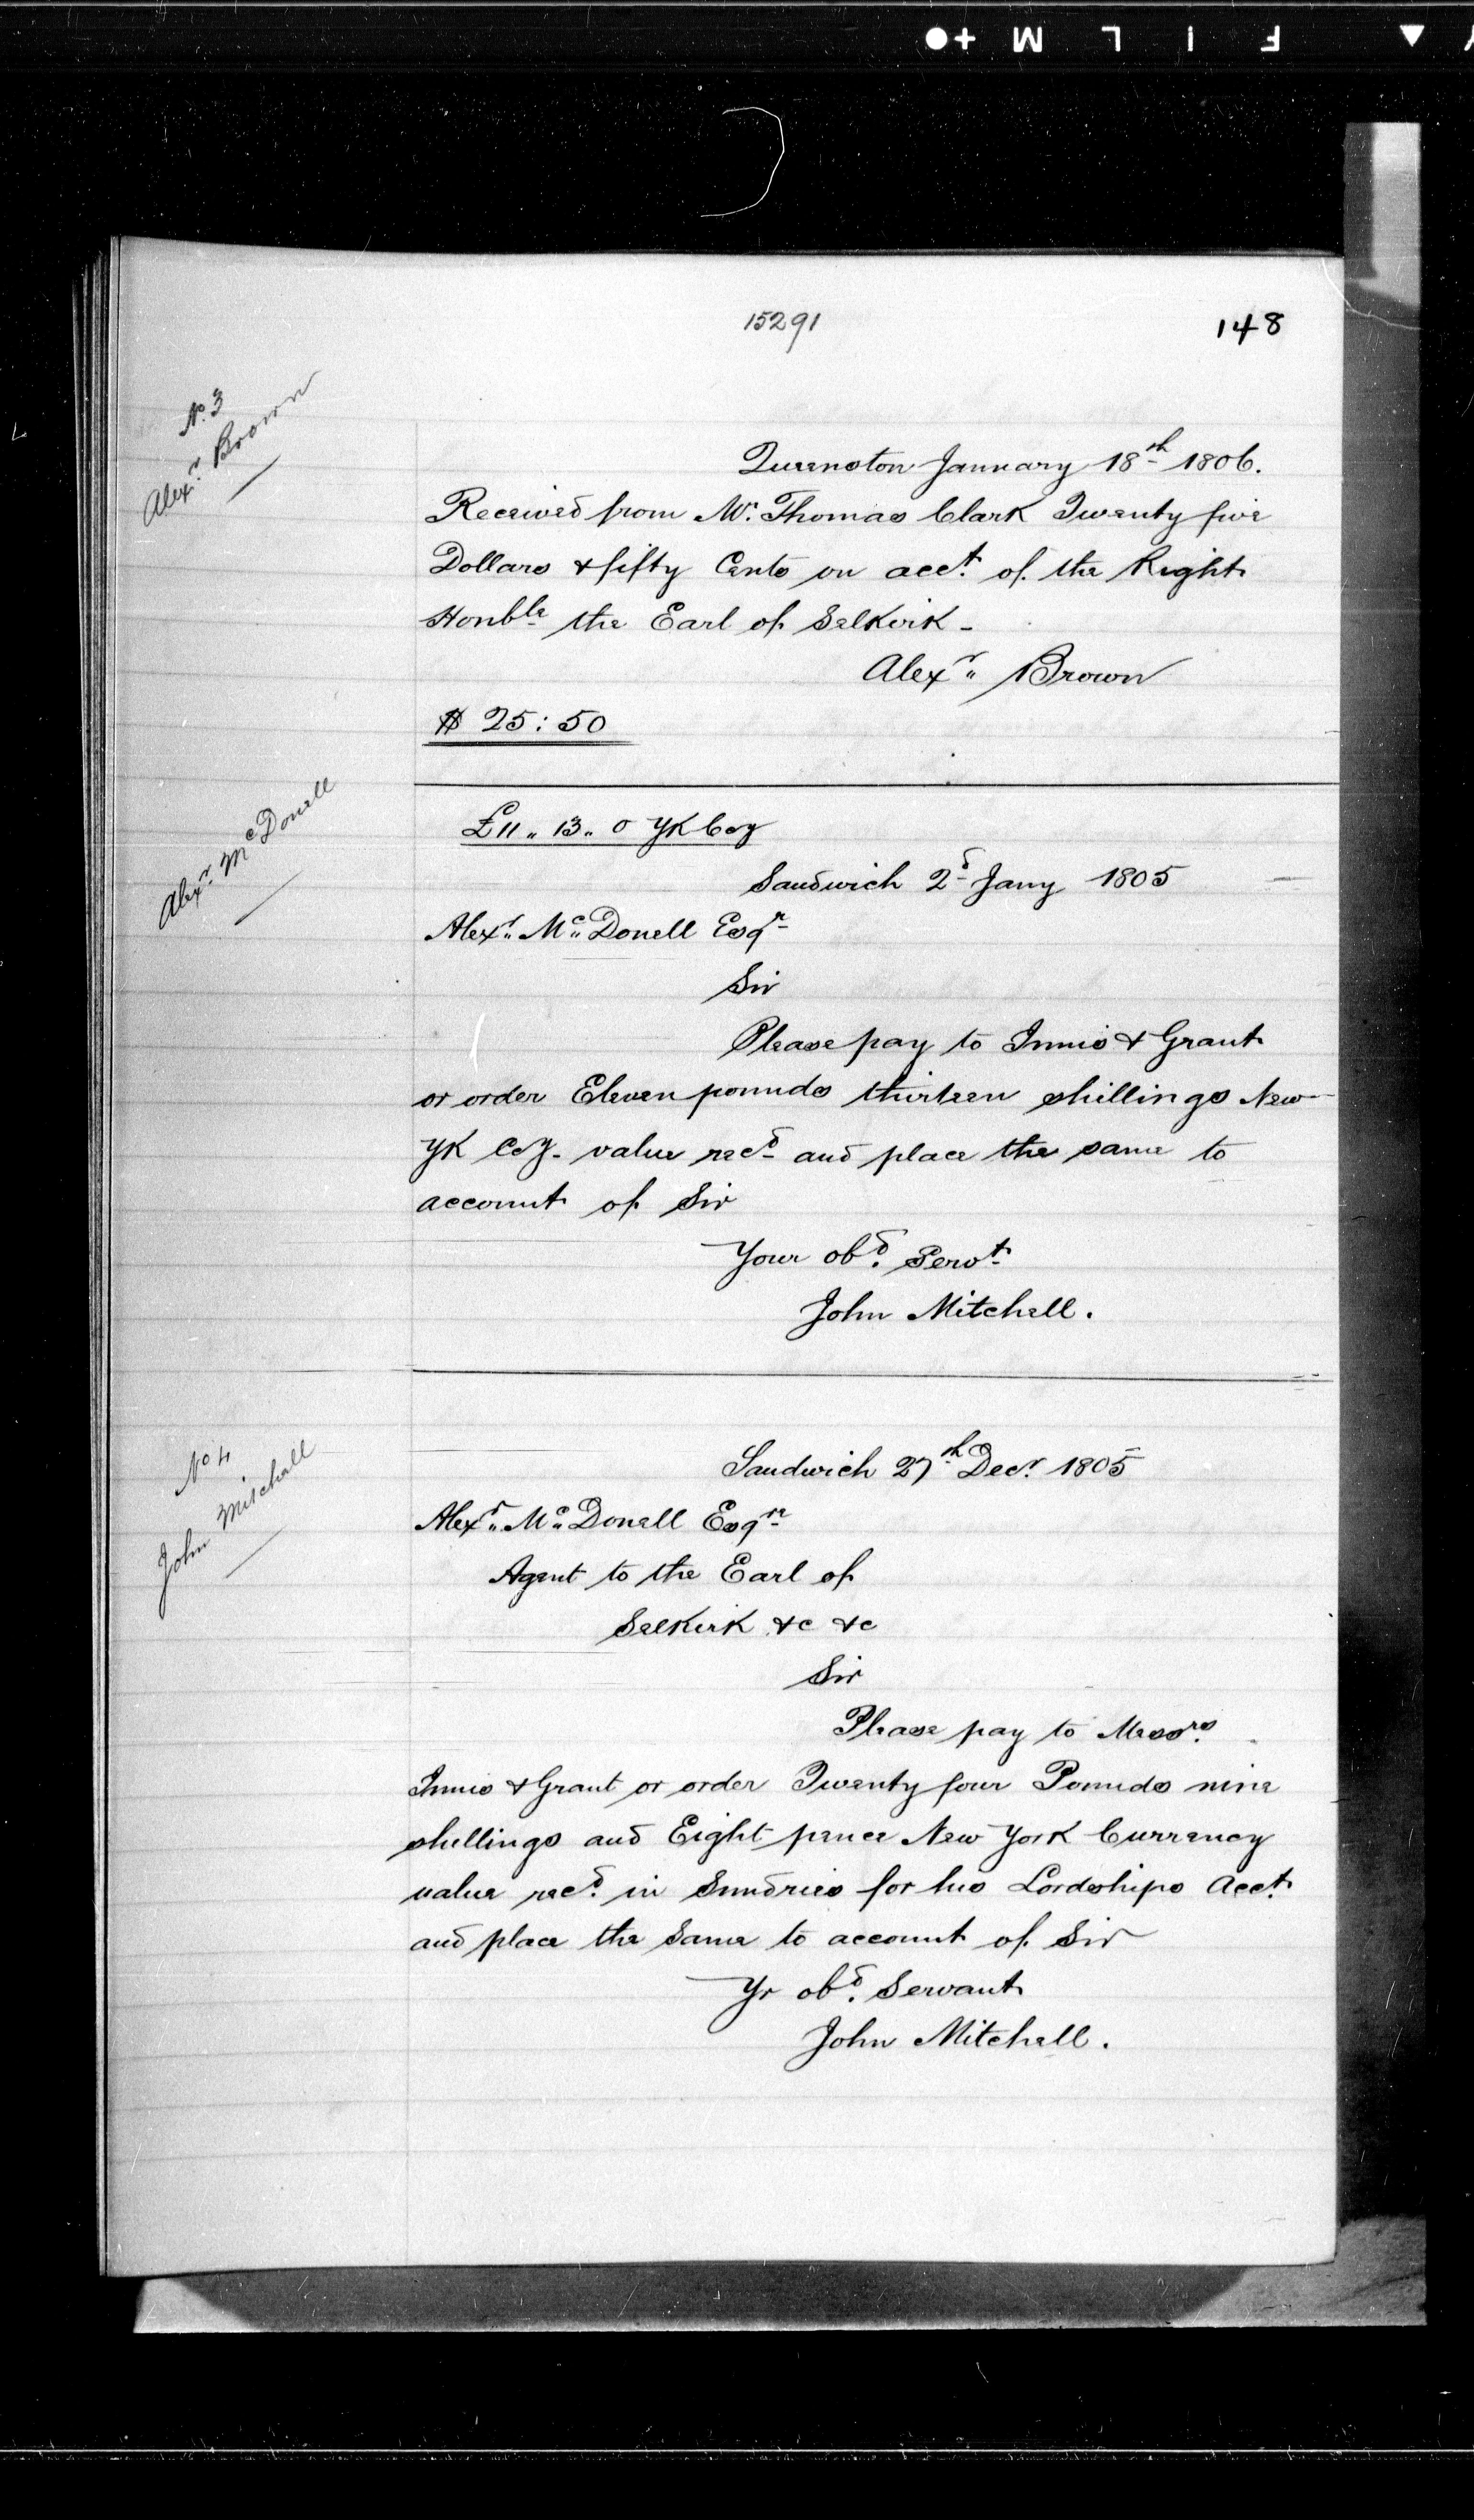 15291
148
No. 3
Alexr. Brown
Queenston January 18th 1806.
Received from Mr. Thomas Clark Twenty five
Dollars & fifty Cents on acct. of the Right
Honble the Earl of Selkirk -
Alexr. Brown
$ 25:50
Alexr. McDonell
£11 " 13 " 0 YK Coy
Sandwich 2d Jany 1805
Alexr. Mc. Donell Esqr
Sir
Please pay to Innis & Grant
or order Eleven pounds thirteen shillings New
YK Cy. value recd and place the same to
account of Sir
Your obd. Servt.
John Mitchell.
No 4
John Mitchell
Sandwich 27th Decr. 1805
Alexr. Mc. Donell Esqre
Agent to the Earl of
Selkirk &c &c
Sir
Please pay to Messrs.
Innis & Grant or order Twenty four Pounds nine
shillings and Eight pence New York Currency
value recd. in Sundries for his Lordships Acct.
and place the same to account of Sir
Yr obd. Servant
John Mitchell.